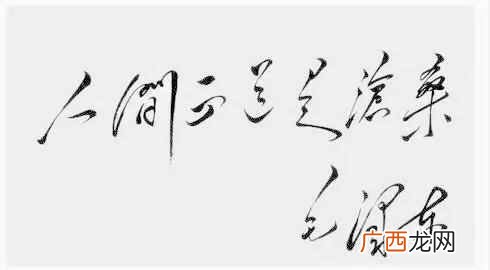 人間正道是滄桑
毛澤东
广西龙网